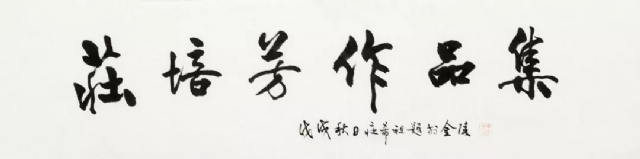 莊培芳作品集
戊戌秋日莊希祖題於金陵